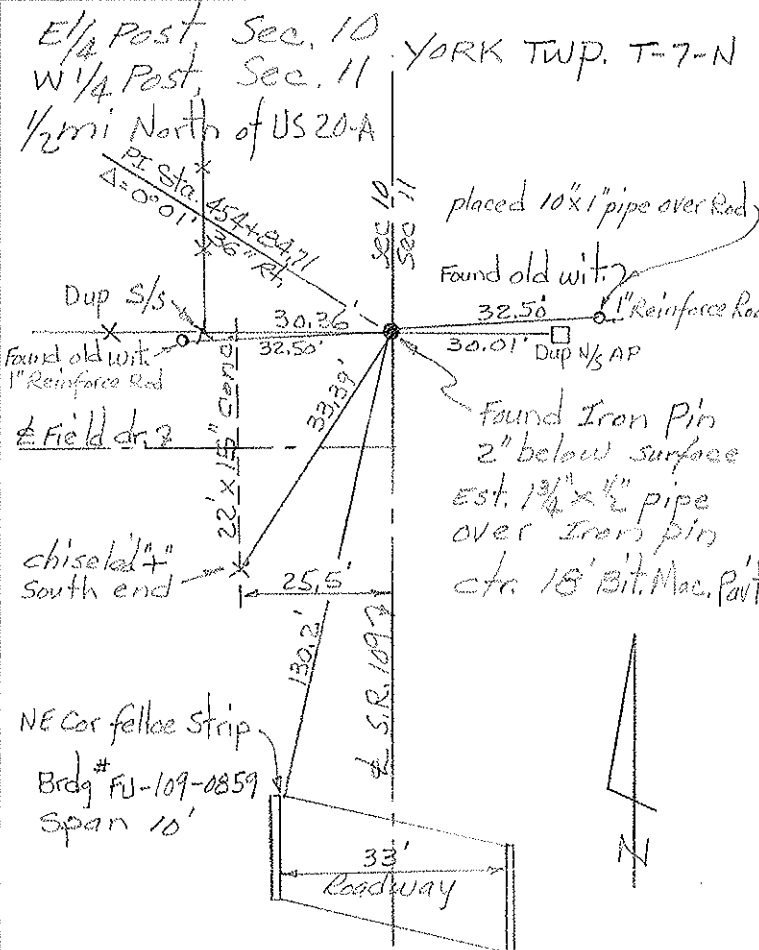 E 1/4 Post, Sec. 10
W 1/4 Post, Sec. 11
1/2 mi North of US 20-A
YORK TWP. T-7-N
PI Sta. 454+84.71
Δ=0°01' 36" Rt.
Sec 10
Sec 11
placed 10"x1" pipe over Rod
Found old wit.
1" Reinforce Rod
Dup S/S
30.36'
32.50'
32.50'
30.01'
Dup N/S AP
Found old wit.
1" Reinforce Rod
22' x 15" Conc.
33.39'
Found Iron Pin
2" below surface
Est. 1 3/4" x 1/2" pipe
over Iron pin
ctr. 18' Bit. Mac. Pav't
℄ Field dr.
chiseled "+"
South end
25.5'
130.2'
℄ S.R. 109
NE Cor felloe Strip
Brdg # FU-109-0859
Span 10'
33'
Roadway
N